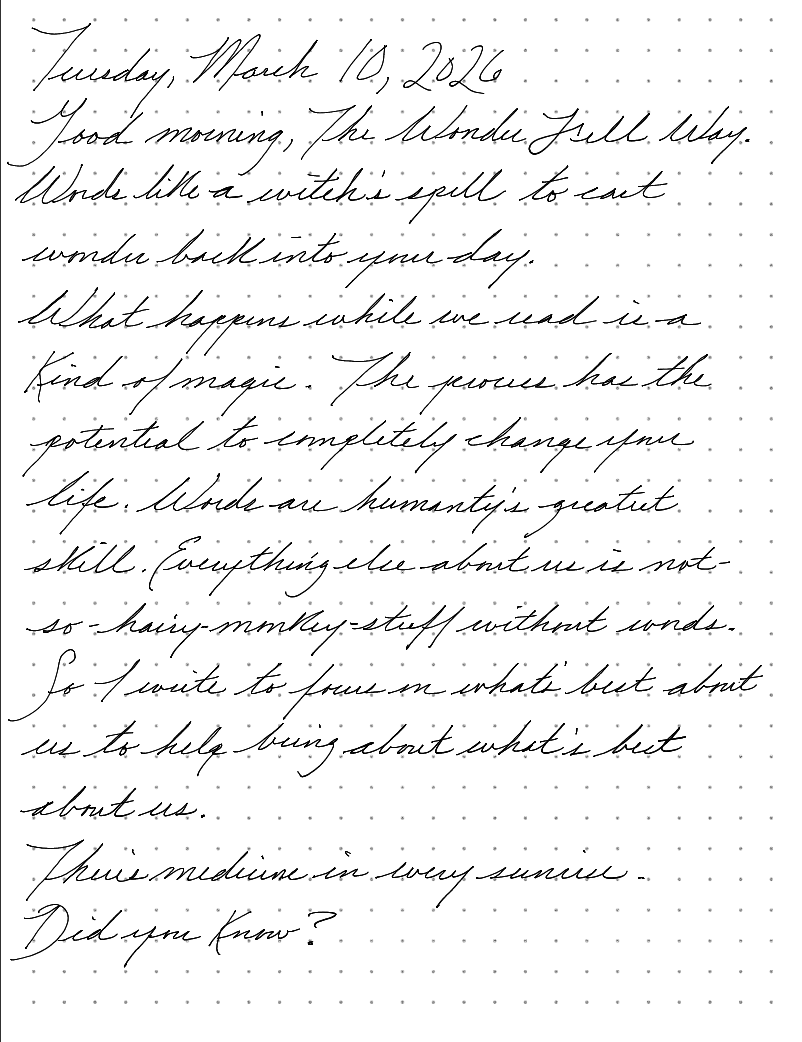 Tuesday, March 10, 2026
Good morning, The Wonder Well Way.
Words like a witch's spell to cast
wonder back into your day.
What happens while we read is a
kind of magic. The process has the
potential to completely change your
life. Words are humanty's greatest
skill. Everything else about us is not-
so-hairy-monkey-stuff without words.
So I write to focus on what's best about
us to help bring about what's best
about us.
There's medicine in every sunrise.
Did you know?